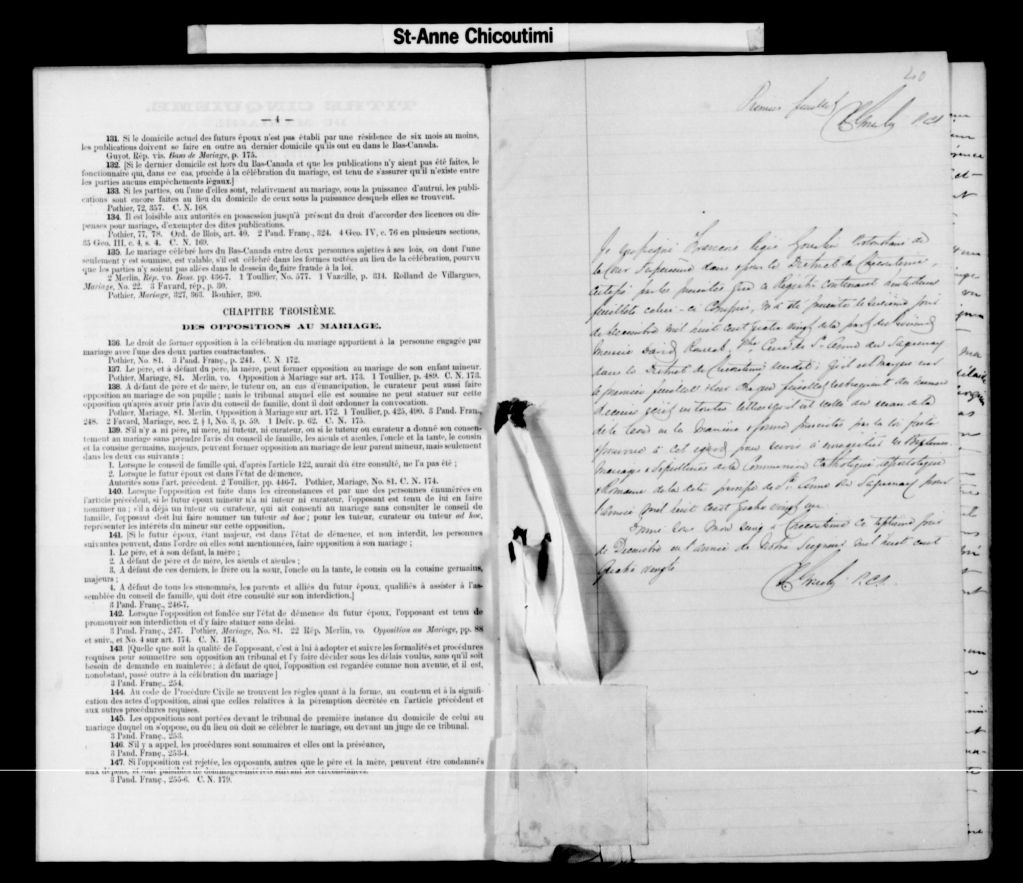 St-Anne Chicoutimi
— 4 —
131. Si le domicile actuel des futurs époux n'est pas établi par une résidence de six mois au moins,
les publications doivent se faire en outre au dernier domicile qu'ils ont eu dans le Bas-Canada.
Guyot, Rép. vis. Bans de Mariage, p. 175.
132. [Si le dernier domicile est hors du Bas-Canada et que les publications n'y aient pas été faites, le
fonctionnaire qui, dans ce cas, procède à la célébration du mariage, est tenu de s'assurer qu'il n'existe entre
les parties aucuns empêchements légaux.]
133. Si les parties, ou l'une d'elles sont, relativement au mariage, sous la puissance d'autrui, les publi-
cations sont encore faites au lieu du domicile de ceux sous la puissance desquels elles se trouvent.
Pothier, 72, 357. C. N. 168.
134. Il est loisible aux autorités en possession jusqu'à présent du droit d'accorder des licences ou dis-
penses pour mariage, d'exempter des dites publications.
Pothier, 77, 78. Ord. de Blois, art. 40. 2 Pand. Franç., 324. 4 Geo. IV, c. 76 en plusieurs sections,
35 Geo. III, c. 4, s. 4. C. N. 169.
135. Le mariage célébré hors du Bas-Canada entre deux personnes sujettes à ses lois, ou dont l'une
seulement y est soumise, est valable, s'il est célébré dans les formes usitées au lieu de la célébration, pourvu
que les parties n'y soient pas allées dans le dessein de faire fraude à la loi.
2 Merlin, Rép. vo. Bans, pp. 456-7. 1 Toullier, No. 577. 1 Vazeille, p. 314. Rolland de Villargues,
Mariage, No. 22. 3 Favard, rép., p. 30.
Pothier, Mariage, 327, 363. Bouhier, 390.
CHAPITRE TROISIÈME.
DES OPPOSITIONS AU MARIAGE.
136. Le droit de former opposition à la célébration du mariage appartient à la personne engagée par
mariage avec l'une des deux parties contractantes.
Pothier, No. 81. 3 Pand. Franç., p. 241. C. N. 172.
137. Le père, et à défaut du père, la mère, peut former opposition au mariage de son enfant mineur.
Pothier, Mariage, 81. Merlin, vo. Opposition à Mariage sur art. 173. 1 Toullier, p. 489. C. N. 173.
138. A défaut de père et de mère, le tuteur ou, au cas d'émancipation, le curateur peut aussi faire
opposition au mariage de son pupille; mais le tribunal auquel elle est soumise ne peut statuer sur cette
opposition qu'après avoir pris l'avis du conseil de famille, dont il doit ordonner la convocation.
Pothier, Mariage, 81. Merlin, Opposition à Mariage sur art. 172. 1 Toullier, p. 425, 490. 3 Pand. Fran.,
248. 2 Favard, Mariage, sec. 2, § 1, No. 3, p. 59. 1 Delv. p. 62. C. N. 175.
139. S'il n'y a ni père, ni mère, ni tuteur, ni curateur, ou si le tuteur ou curateur a donné son consen-
tement au mariage sans prendre l'avis du conseil de famille, les aïeuls et aïeules, l'oncle et la tante, le cousin
et la cousine germains, majeurs, peuvent former opposition au mariage de leur parent mineur, mais seulement
dans les deux cas suivants:
1. Lorsque le conseil de famille qui, d'après l'article 122, aurait dû être consulté, ne l'a pas été;
2. Lorsque le futur époux est dans l'état de démence.
Autorités sous l'art. précédent. 2 Toullier, pp. 446-7. Pothier, Mariage, No. 81. C. N. 174.
140. Lorsque l'opposition est faite dans les circonstances et par une des personnes énumérées en
l'article précédent, si le futur époux mineur n'a ni tuteur ni curateur, l'opposant est tenu de lui en faire
nommer un; s'il a déjà un tuteur ou curateur, qui ait consenti au mariage sans consulter le conseil de
famille, l'opposant doit lui faire nommer un tuteur ad hoc; pour les tuteur, curateur ou tuteur ad hoc,
représenter les intérêts du mineur sur cette opposition.
141. [Si le futur époux, étant majeur, est dans l'état de démence, et non interdit, les personnes
suivantes peuvent, dans l'ordre où elles sont mentionnées, faire opposition à son mariage;
1. Le père, et à son défaut, la mère;
2. A défaut de père et de mère, les aïeuls et aïeules;
3. A défaut de ces derniers, le frère ou la sœur, l'oncle ou la tante, le cousin ou la cousine germains,
majeurs;
4. A défaut de tous les susnommés, les parents et alliés du futur époux, qualifiés à assister à l'as-
semblée du conseil de famille, qui doit être consulté sur son interdiction.]
3 Pand. Franç., 246-7.
142. Lorsque l'opposition est fondée sur l'état de démence du futur époux, l'opposant est tenu de
promouvoir son interdiction et d'y faire statuer sans délai.
3 Pand. Franç., 247. Pothier, Mariage, No. 81. 22 Rép. Merlin, vo. Opposition au Mariage, pp. 88
et suiv., et No. 4 sur art. 174. C. N. 174.
143. [Quelle que soit la qualité de l'opposant, c'est à lui à adopter et suivre les formalités et procédures
requises pour soumettre son opposition au tribunal et l'y faire décider sous les délais voulus, sans qu'il soit
besoin de demande en mainlevée; à défaut de quoi, l'opposition est regardée comme non avenue, et il est,
nonobstant, passé outre à la célébration du mariage]
3 Pand. Franç., 254.
144. Au code de Procédure Civile se trouvent les règles quant à la forme, au contenu et à la signifi-
cation des actes d'opposition, ainsi que celles relatives à la péremption décrétée en l'article précédent et
aux autres procédures requises.
145. Les oppositions sont portées devant le tribunal de première instance du domicile de celui au
mariage duquel on s'oppose, ou du lieu où doit se célébrer le mariage, ou devant un juge de ce tribunal.
3 Pand. Franç., 253.
146. S'il y a appel, les procédures sont sommaires et elles ont la préséance,
3 Pand. Franç., 253-4.
147. Si l'opposition est rejetée, les opposants, autres que le père et la mère, peuvent être condamnés
aux dépens, et sont passibles de dommages-intérêts suivant les circonstances.
3 Pand. Franç., 255-6. C. N. 179.
Premier feuillet
P.C.S.
Je soussigné François Régis Gosselin Protonotaire de
la Cour Supérieure dans & pour le District de Chicoutimi,
certifie par les présentes que ce Registre contenant
feuillets celui-ci compris, m'a été présenté le
de décembre mil huit cent quatre vingt de la part du Révérend
Messire David Roussel, Ptre Curé de St Anne du Saguenay
dans le District de Chicoutimi susdit; qu'il est marqué sur
le premier feuillet & sur chaque feuillet subséquent du numéro
d'icelui écrit en toutes lettres
de la Cour en la manière & forme prescrites par la loi faite
& pourvue à cet égard pour servir à enregistrer les Baptêmes
mariages & sépultures de la Communion Catholique apostolique
& Romaine de la dite paroisse de St Anne du Saguenay pour
l'année mil huit cent quatre vingt un.
Donné sous mon seing à Chicoutimi ce septième jour
de Décembre en l'année de Notre Seigneur mil huit cent
quatre vingt.
P.C.S.